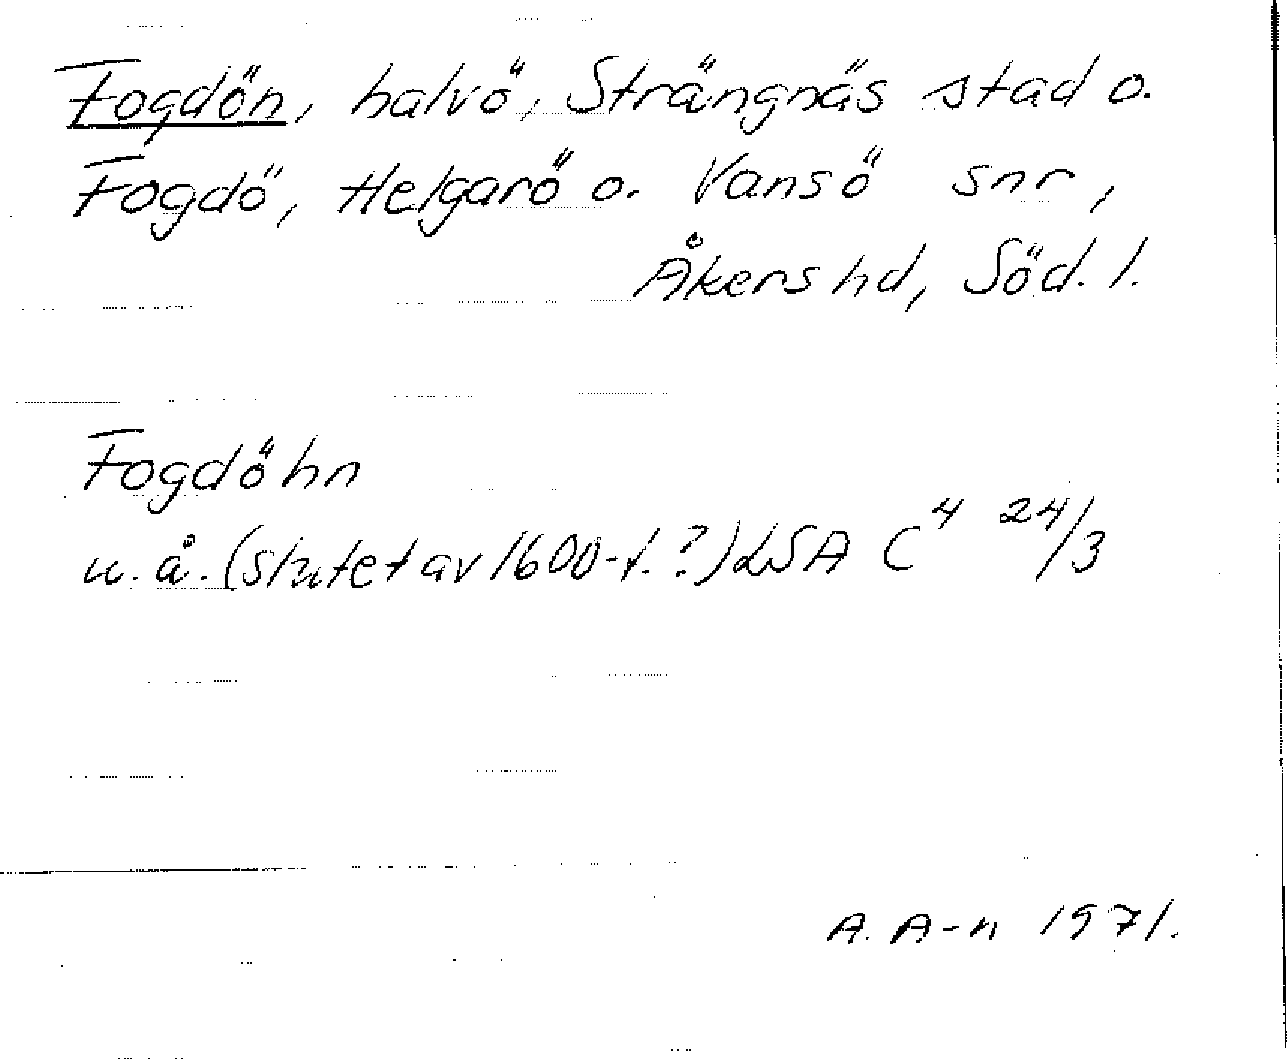 Fogdön, halvö, Strängnäs stad o.
Fogdö, Helgarö o. Vansö snr,
Åkers hd, Söd. l.
Fogdöhn
u.å. (slutet av 1600-t.?) LSA C⁴ 24/3
A. A-n 1971.